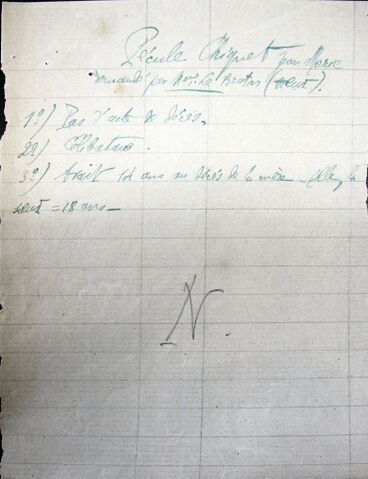 Pécule Chiquet par Marie
demandé par Mme Le Breton (sœur).
1o) Pas d'acte de décès.
2o)
3o) Avait 14 ans au décès de la mère. Elle, la
sœur = 18 ans
N.